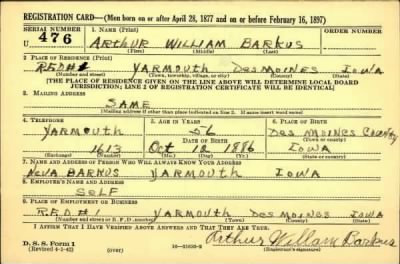 REGISTRATION CARD—(Men born on or after April 28, 1877 and on or before February 16, 1897)
SERIAL NUMBER 1. NAME (Print) ORDER NUMBER
U 476 ARTHUR WILLIAM BARKUS
(First) (Middle) (Last)
2. PLACE OF RESIDENCE (Print)
R.F.D #1 YARMOUTH DES MOINES IOWA
(Number and street) (Town, township, village, or city) (County) (State)
[THE PLACE OF RESIDENCE GIVEN ON THE LINE ABOVE WILL DETERMINE LOCAL BOARD
JURISDICTION; LINE 2 OF REGISTRATION CERTIFICATE WILL BE IDENTICAL]
3. MAILING ADDRESS
SAME
[Mailing address if other than place indicated on line 2. If same insert word same]
4. TELEPHONE 5. AGE IN YEARS 6. PLACE OF BIRTH
YARMOUTH 56 DES MOINES COUNTY
DATE OF BIRTH (Town or county)
1613 Oct 12 1886 IOWA
(Exchange) (Number) (Mo.) (Day) (Yr.) (State or country)
7. NAME AND ADDRESS OF PERSON WHO WILL ALWAYS KNOW YOUR ADDRESS
NEVA BARKUS YARMOUTH IOWA
8. EMPLOYER'S NAME AND ADDRESS
SELF
9. PLACE OF EMPLOYMENT OR BUSINESS
R.F.D #1 YARMOUTH DES MOINES IOWA
(Number and street or R. F. D. number) (Town) (County) (State)
I AFFIRM THAT I HAVE VERIFIED ABOVE ANSWERS AND THAT THEY ARE TRUE.
D. S. S. Form 1
(Revised 4-1-42) (over) Arthur William Barkus
(Registrant's signature)